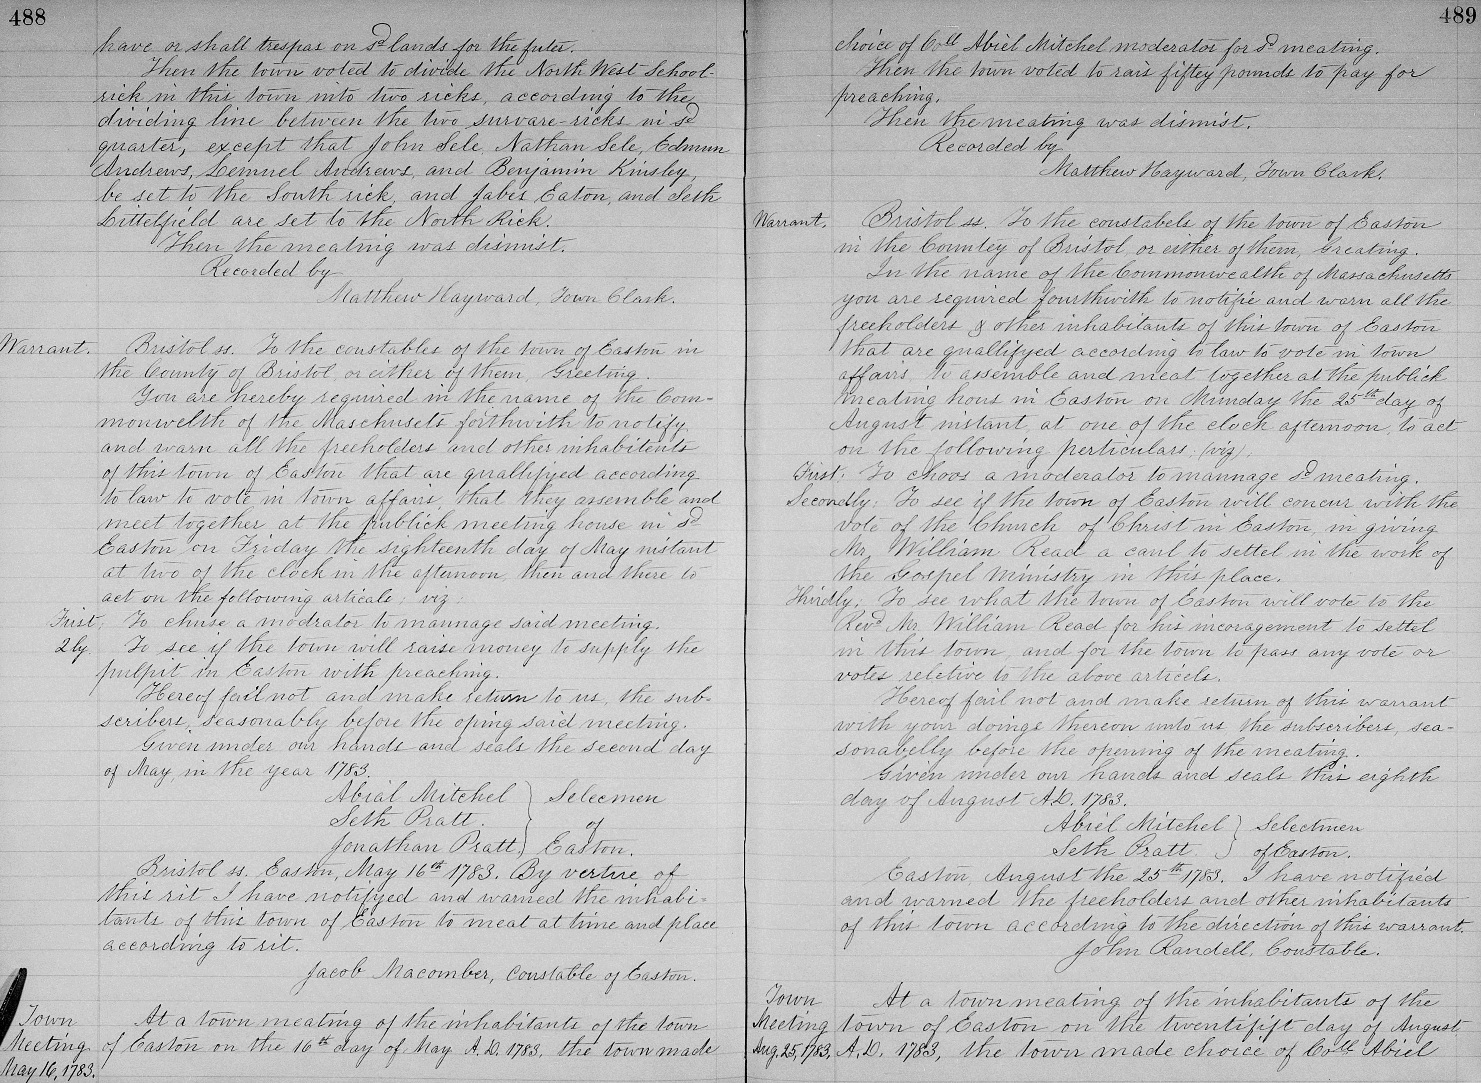 488
have or shall trespas on sd lands for the futer.
Then the town voted to divide the North West School-
rick in this town into two ricks, according to the
dividing line between the two survare-ricks in sd
quarter, except that John Sele, Nathan Sele, Edmun
Andrews, Lemuel Andrews, and Benjamin Kinsley,
be set to the South rick, and Jabis Eaton, and Seth
Littelfield are set to the North Rick.
Then the meating was dismist.
Recorded by
Matthew Hayward, Town Clark.
Warrant. Bristol ss. To the constables of the town of Easton in
the County of Bristol, or either of them, Greeting.
You are hereby required in the name of the Com-
monwelth of the Maschusets forthwith to notify
and warn all the freeholders and other inhabitents
of this town of Easton that are quallifyed according
to law to vote in town affairs, that they assemble and
meet together at the publick meeting house in sd
Easton on Friday the sighteenth day of May instant
at two of the clock in the afternoon, then and there to
act on the following articals; viz:
First; To chuse a modrator to mannage said meeting.
2ly. To see if the town will raise money to supply the
pulpit in Easton with preaching.
Hereof fail not and make return to us, the sub-
scribers, seasonably before the oping said meeting.
Given under our hands and seals the second day
of May, in the year 1783.
Abial Mitchel } Selecmen
Seth Pratt. } of
Jonathan Pratt, } Easton.
Bristol ss. Easton, May 16th 1783. By vertue of
this rit I have notifyed and warned the inhabi-
tants of this town of Easton to meat at time and place
according to rit.
Jacob Macomber, constable of Easton.
Town At a town meating of the inhabitants of the town
Meeting of Easton on the 16th day of May A.D. 1783, the town made
May 16, 1783.
489
choice of Coll Abiel Mitchel moderator for sd meating.
Then the town voted to rais fiftey pounds to pay for
preaching.
Then the meating was dismist.
Recorded by
Matthew Hayward, Town Clark.
Warrant. Bristol ss. To the constabels of the town of Easton
in the Countey of Bristol or either of them, Greating.
In the name of the Commonwealth of Massachusetts
you are required fourthwith to notifie and warn all the
freeholders & other inhabitants of this town of Easton
that are quallifyed according to law to vote in town
affairs, to assemble and meat together at the publick
meating hous in Easton on Munday the 25th day of
August instant, at one of the clock afternoon, to act
on the following perticulars, (viz).
First; To choos a moderator to mannage sd meating.
Secondly: To see if the town of Easton will concur with the
vote of the Church of Christ in Easton, in giving
Mr. William Read a caul to settel in the work of
the Gospel Ministry in this place.
Thirdly; To see what the town of Easton will vote to the
Revd Mr. William Read for his incoragement to settel
in this town, and for the town to pass any vote or
votes reletive to the above articels.
Hereof fail not and make return of this warrant
with your doings thereon unto us the subscribers, sea-
sonabelly before the opening of the meating.
Given under our hands and seals this eighth
day of August A.D. 1783.
Abiel Mitchel } Selectmen
Seth Pratt. } of Easton.
Easton, August the 25th 1783. I have notified
and warned the freeholders and other inhabitants
of this town according to the direction of this warrant.
John Randell, Constable.
Town At a town meating of the inhabitants of the
Meeting town of Easton on the twentifift day of August
Aug. 25, 1783. A.D. 1783, the town made choice of Coll Abiel